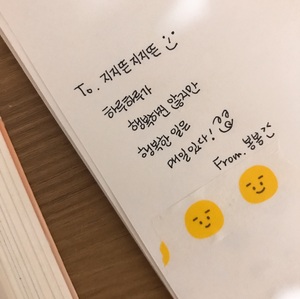 To. 지지뜬 지지뜬
하루하루가
행복하진 않지만
행복한 일은
매일 있다!
From. 봉봉